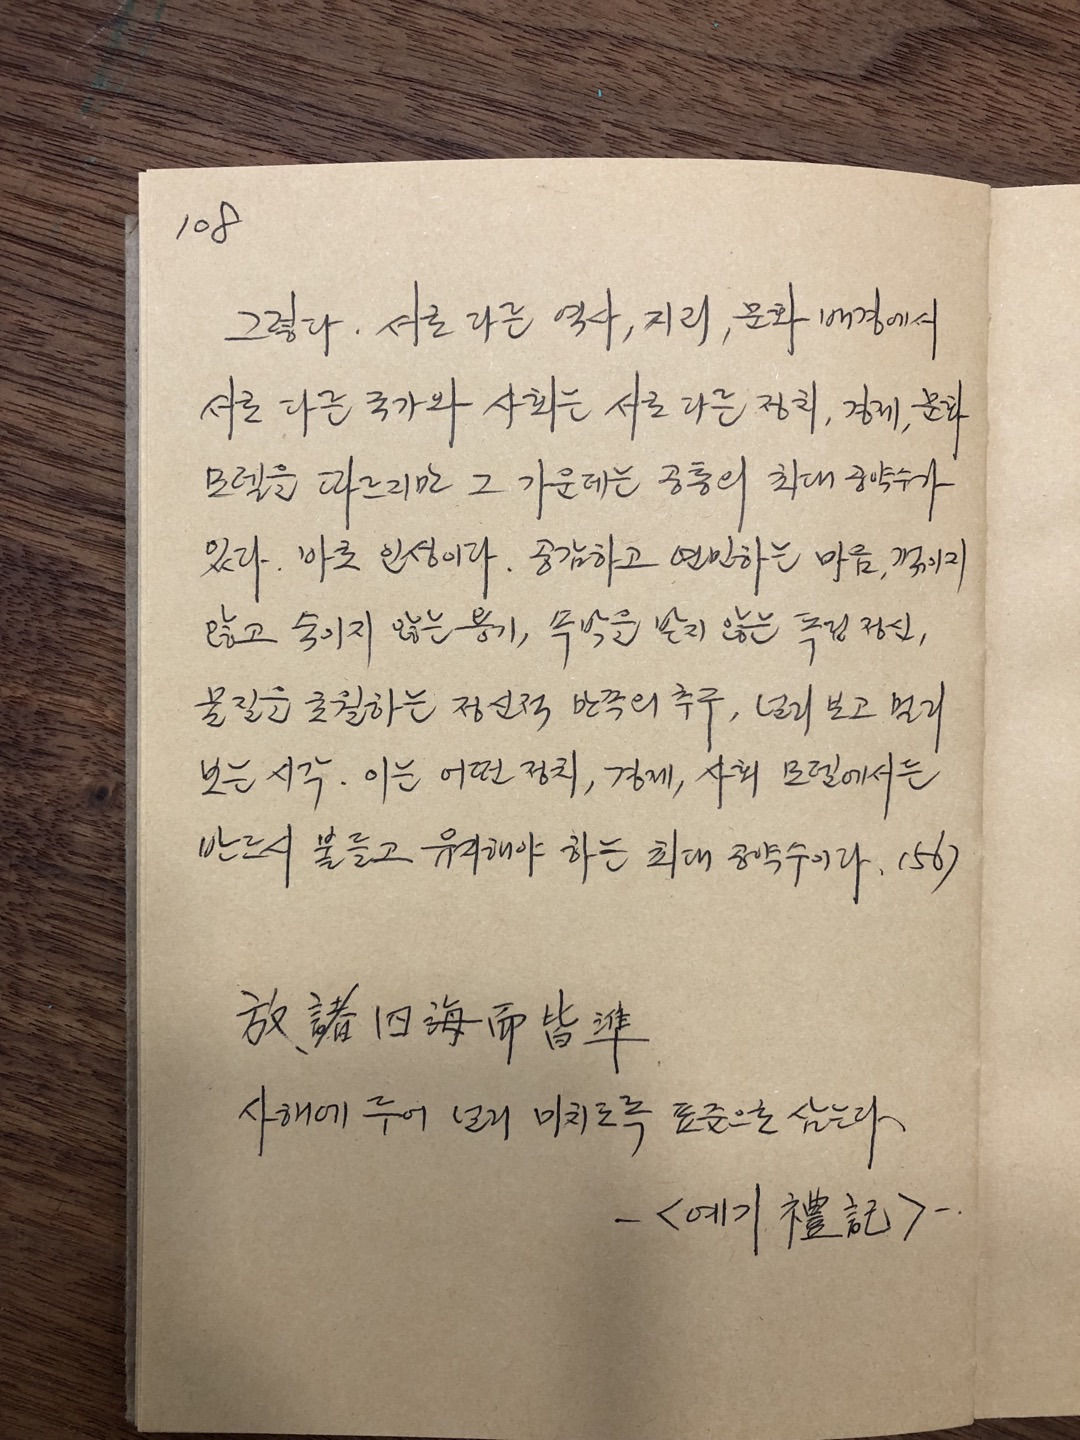 108
그렇다. 서로 다른 역사, 지리, 문화 배경에서
서로 다른 국가와 사회는 서로 다른 정치, 경제, 문화
모델을 따르지만 그 가운데는 공통의 최대 공약수가
있다. 바로 인성이다. 공감하고 연민하는 마음, 꺾이지
않고 숙이지 않는 용기, 속박을 받지 않는 독립 정신,
물질을 초월하는 정신적 만족의 추구, 널리 보고 멀리
보는 시각. 이는 어떤 정치, 경제, 사회 모델에서든
반드시 붙들고 유지해야 하는 최대 공약수이다. (56)
放諸四海而皆準
사해에 두어 널리 미치도록 표준으로 삼는다.
- <예기 禮記> -.